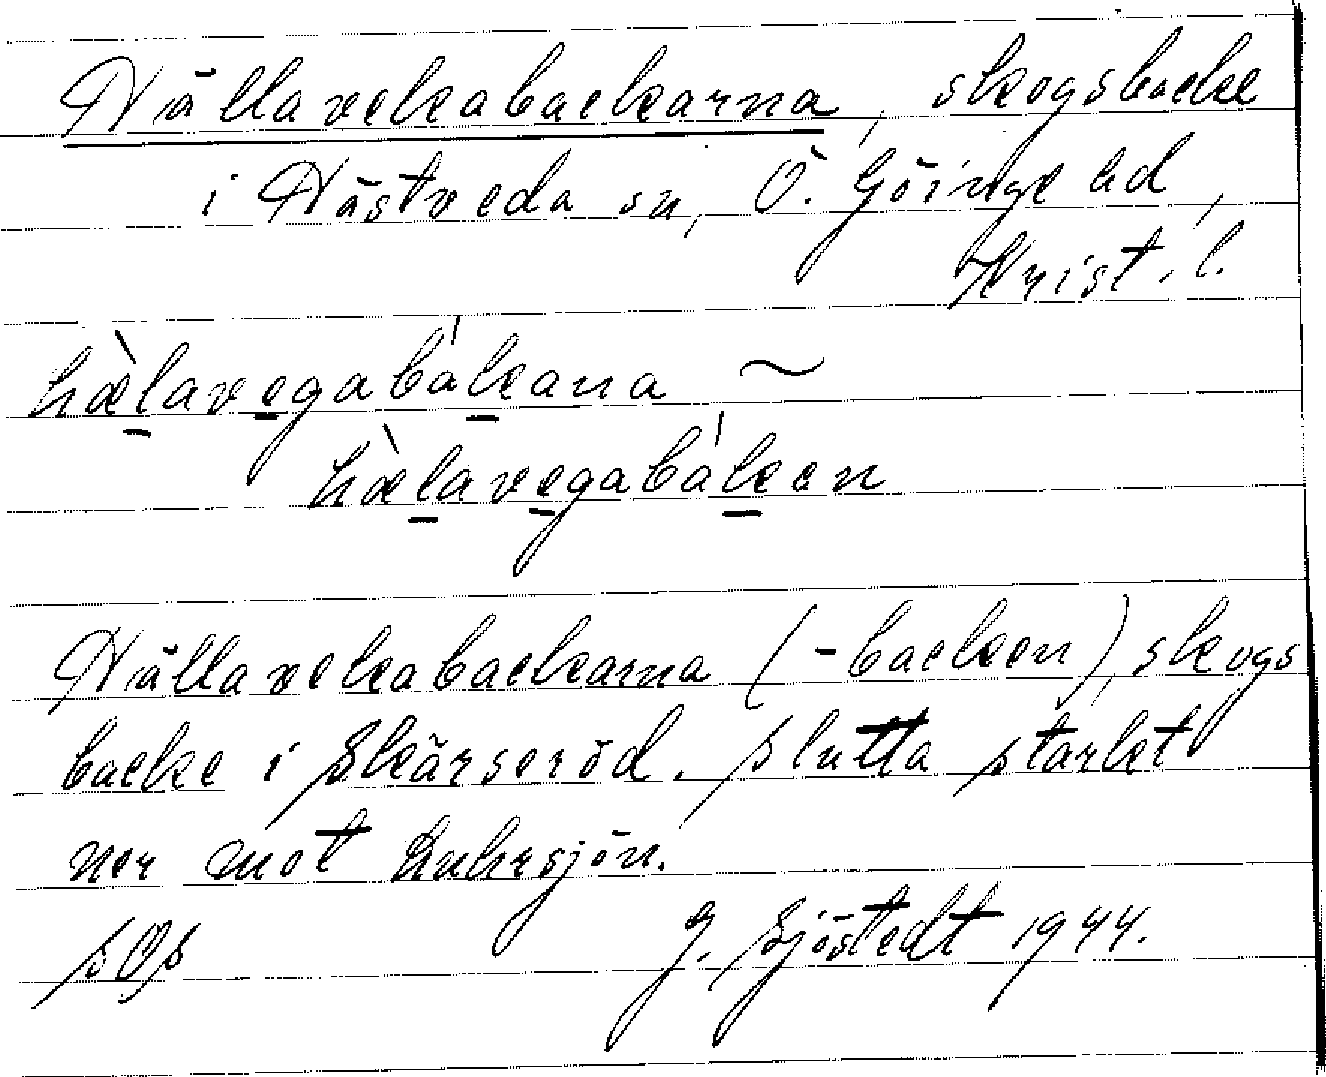 Hällavekabackarna, skogsbacke
i Hästveda sn, Ö. Göinge hd,
Krist. l.
hæ̀lavegabákana ~
hæ̀lavegabáken
Hällavekabackarna (-backen), skogs
backe i Skärseröd. Slutta starkt
ner mot Luhrsjön.
SOS G. Sjöstedt 1944.